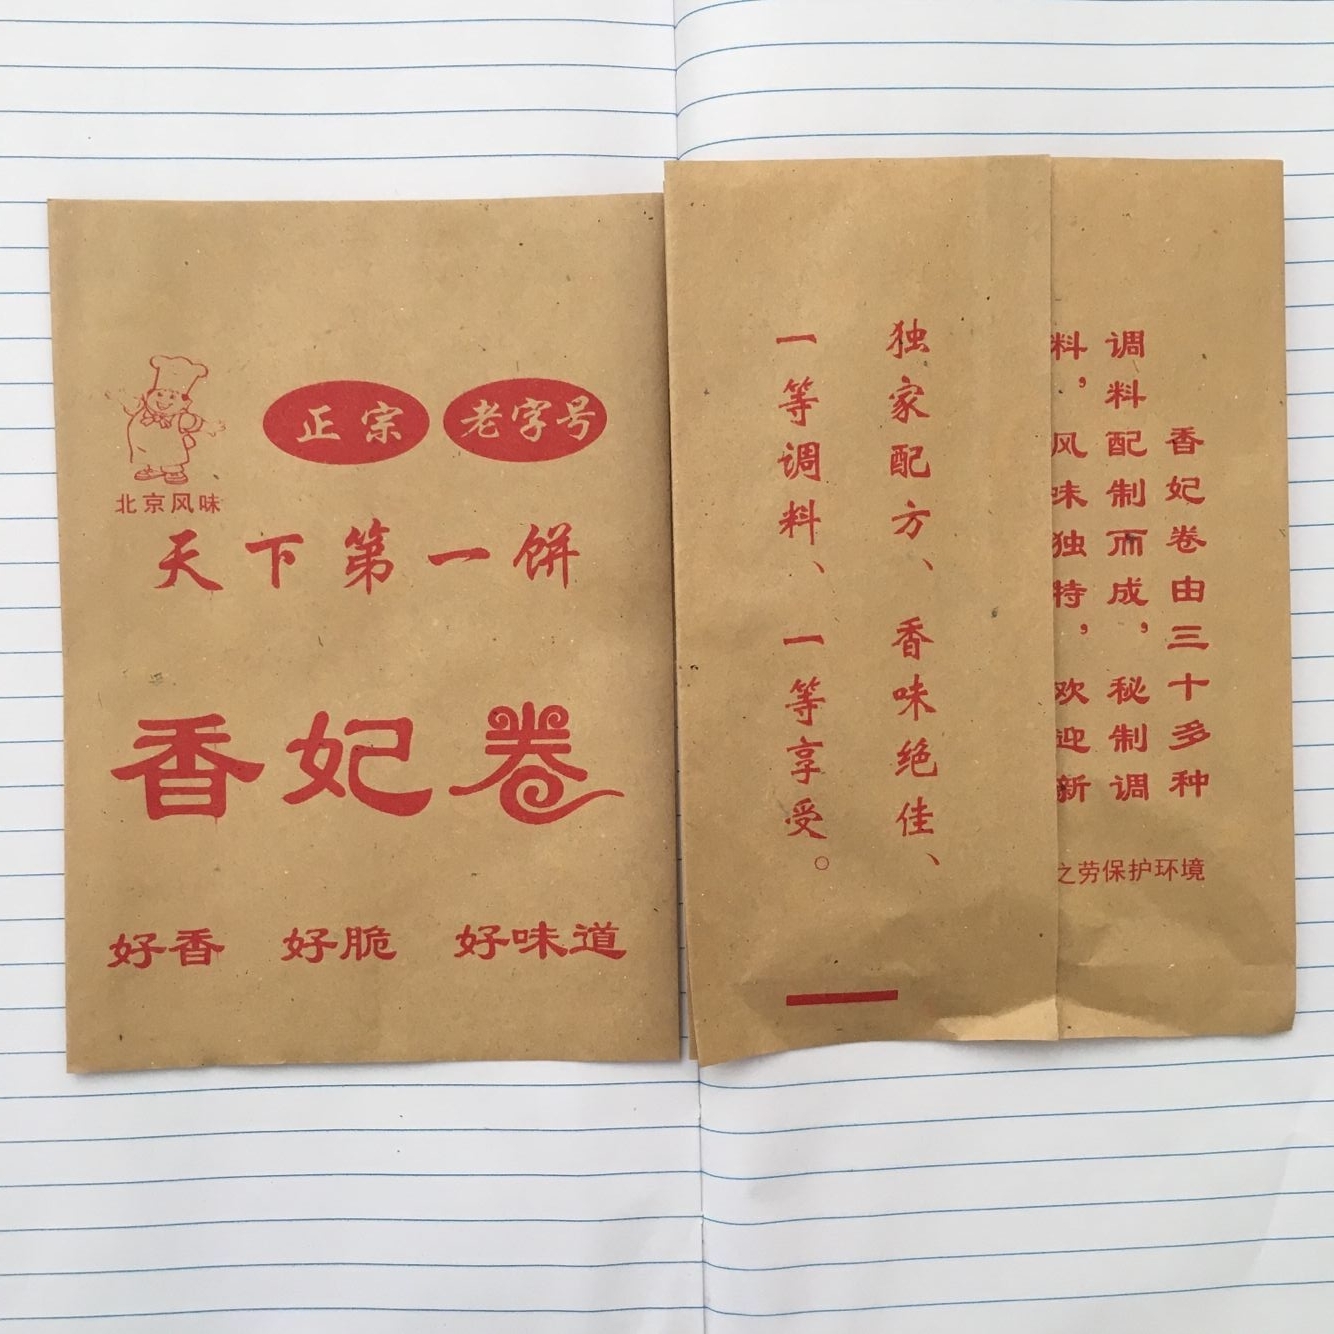 正宗 老字号
北京风味
天下第一饼
香妃卷
好香 好脆 好味道
独家配方、香味绝佳、
一等调料、一等享受。
香妃卷由三十多种
调料配制而成，秘制调
料，风味独特，欢迎新
之劳保护环境